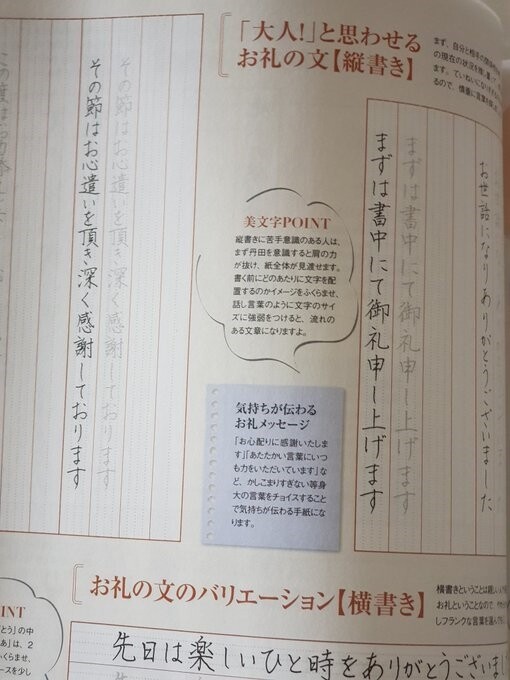 「大人!」と思わせる
お礼の文【縦書き】
まず、自分と相手の
の現在の状況を
ます。ていねいに
るので、慎重に言葉を
お世話になりありがとうございました
まずは書中にて御礼申し上げます
まずは書中にて御礼申し上げます
美文字POINT
縦書きに苦手意識のある人は、
まず丹田を意識すると肩の力
が抜け、紙全体が見渡せます。
書く前にどのあたりに文字を配
置するのかイメージをふくらませ、
話し言葉のように文字のサイ
ズに強弱をつけると、流れの
ある文章になりますよ。
気持ちが伝わる
お礼メッセージ
「お心配りに感謝いたしま
す」「あたたかい言葉にいつ
も力をいただいています」な
ど、かしこまりすぎない等身
大の言葉をチョイスすること
で気持ちが伝わる手紙にな
ります。
その節はお心遣いを頂き深く感謝しております
その節はお心遣いを頂き深く感謝しております
この度は
お礼の文のバリエーション【横書き】
横書きということは親しい
お礼ということなので、
しフランクな言葉を選んで
INT
とう」の中
あ」は、2
ふくらませ、
ースを少し
先日は楽しいひと時をありがとうございま